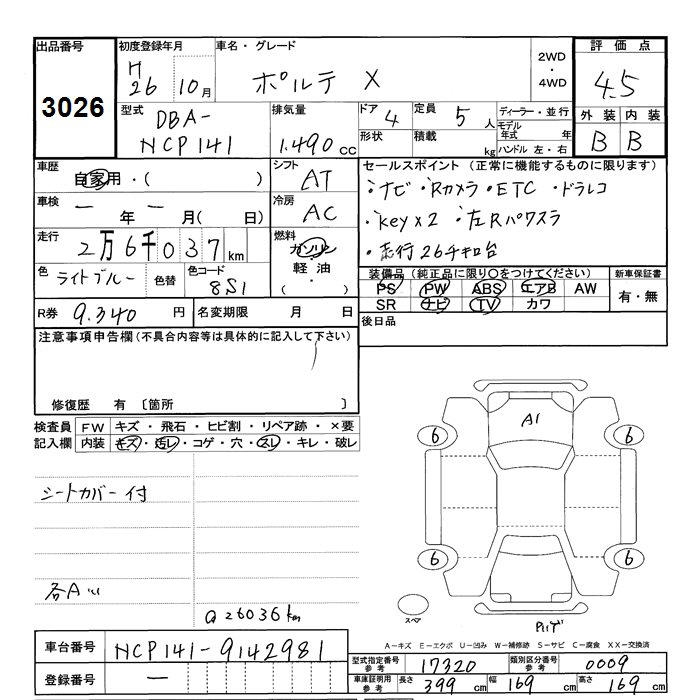 出品番号 初度登録年月 車名・グレード 評価点
3026 H26 10月 ポルテ X 2WD・4WD 4.5
型式 DBA-NCP141 排気量 1.490 cc ドア 4 定員 5人 ディーラー・並行
形状 積載 kg モデル年式 年 ハンドル 左・右
外装 内装
B B
車歴 自家用・( ) シフト AT
セールスポイント (正常に機能するものに限ります)
・ナビ・Rカメラ・ETC・ドラレコ
・key×2 ・左Rパワスラ
・走行26千キロ台
車検 ー年ー月( 日) 冷房 AC
走行 2万6千037km 燃料 ガソリン・軽油・( )
色 ライトブルー 色替 色コード 8S1
装備品 (純正品に限り○をつけてください) 新車保証書
PS PW ABS エアB AW 有・無
SR ナビ TV カワ
R券 9.340 円 名変期限 月 日 後日品
注意事項申告欄 (不具合内容等は具体的に記入して下さい)
修復歴 有 〔箇所 〕
検査員記入欄 FW キズ・飛石・ヒビ割・リペア跡・×要
内装 キズ・汚レ・コゲ・穴・スレ・キレ・破レ
シートカバー付
各A
@26036km
A1
6 6
6 6
スペア
A－キズ E－エクボ U－凹み W－補修跡 S－サビ C－腐食 XX－交換済
車台番号 NCP141-9142981
登録番号 ー
型式指定番号 参考 17320 類別区分番号 参考 0009
車庫証明用 参考 長さ 399 cm 幅 169 cm 高さ 169 cm